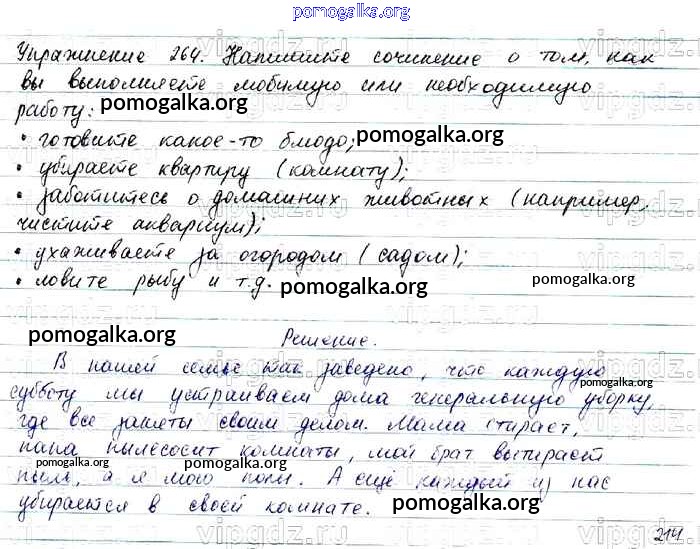 pomogalka.org
Упражнение 264. Напишите сочинение о том, как
вы выполняете любимую или необходимую
работу: pomogalka.org
• готовите какое-то блюдо; pomogalka.org
• убираете квартиру (комнату);
• заботитесь о домашних животных (например,
чистите аквариум);
• ухаживаете за огородом (садом);
• ловите рыбу и т.д. pomogalka.org pomogalka.org
pomogalka.org Решение.
В нашей семье так заведено, что каждую
pomogalka.org
субботу мы устраиваем дома генеральную уборку,
где все заняты своим делом. Мама стирает,
папа пылесосит комнаты, мой брат вытирает
pomogalka.org pomogalka.org
пыль, а я мою полы. А ещё каждый из нас
убирается в своей комнате. pomogalka.org
214